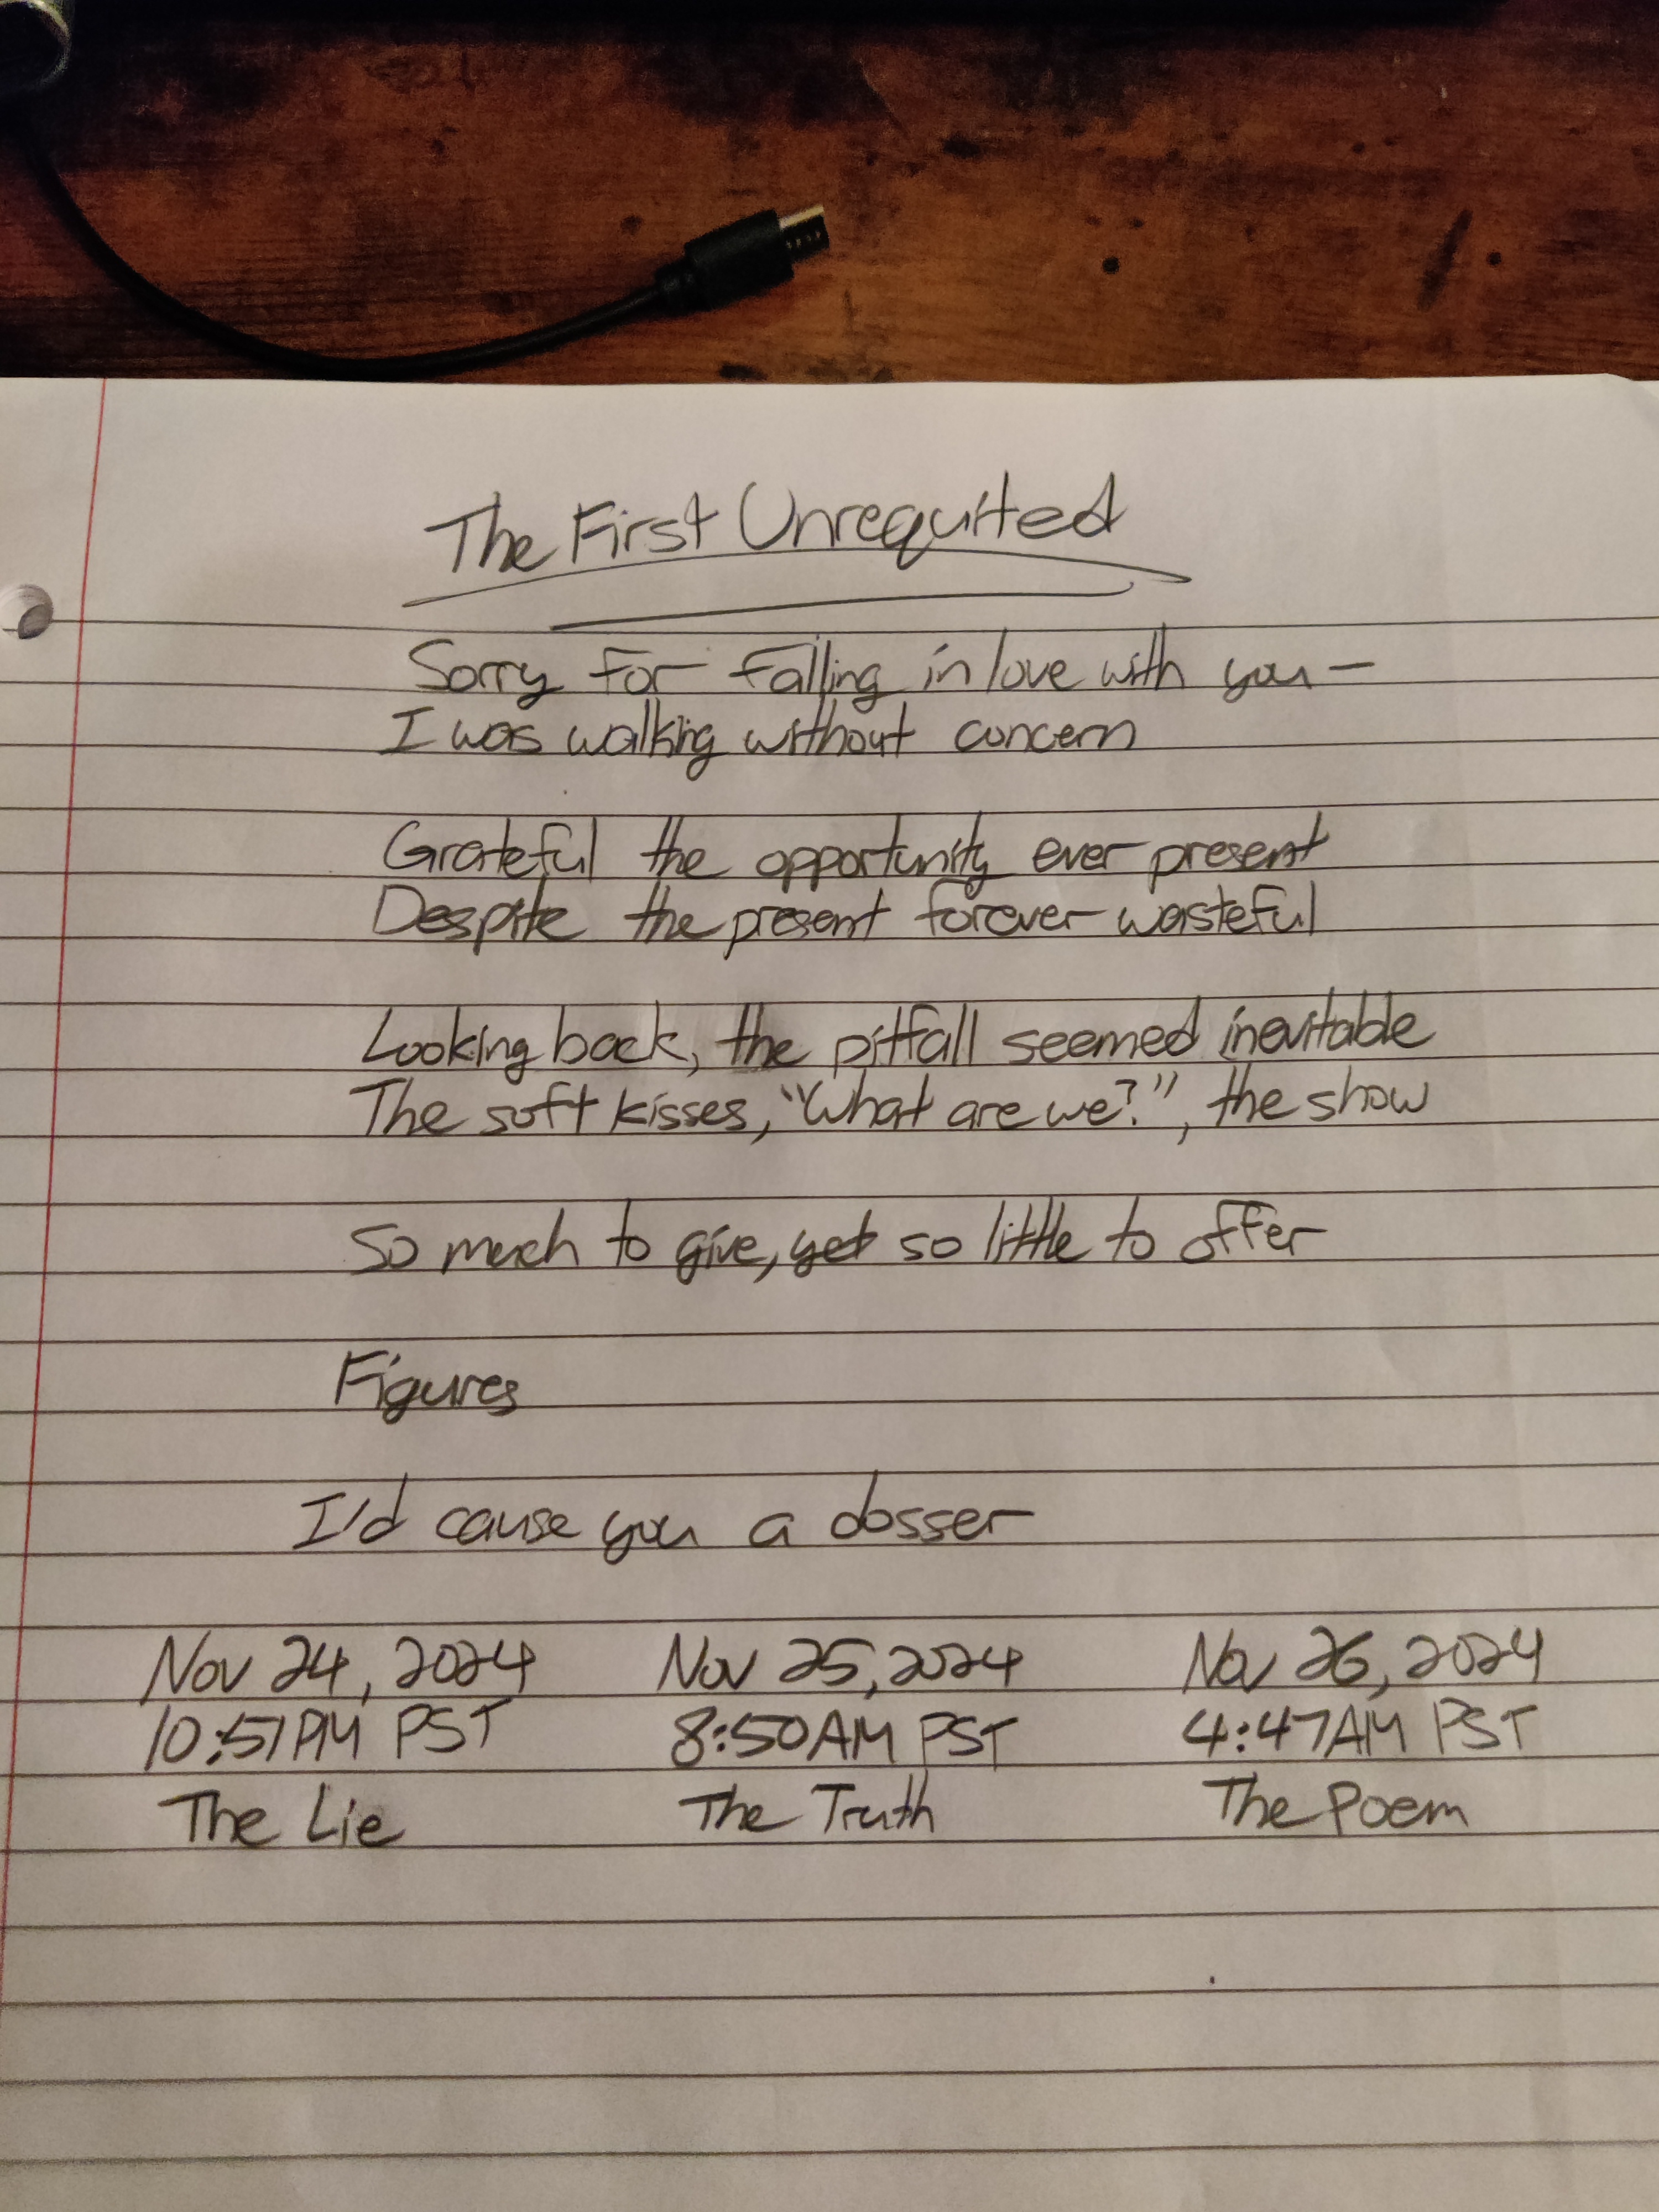 The First Unrequited
Sorry for falling in love with you—
I was walking without concern
Grateful the opportunity ever present
Despite the present forever wasteful
Looking back, the pitfall seemed inevitable
The soft kisses, "What are we?", the show
So much to give, yet so little to offer
Figures
I'd cause you a dosser
Nov 24, 2024 Nov 25, 2024 Nov 26, 2024
10:51PM PST 8:50AM PST 4:47AM PST
The Lie The Truth The Poem